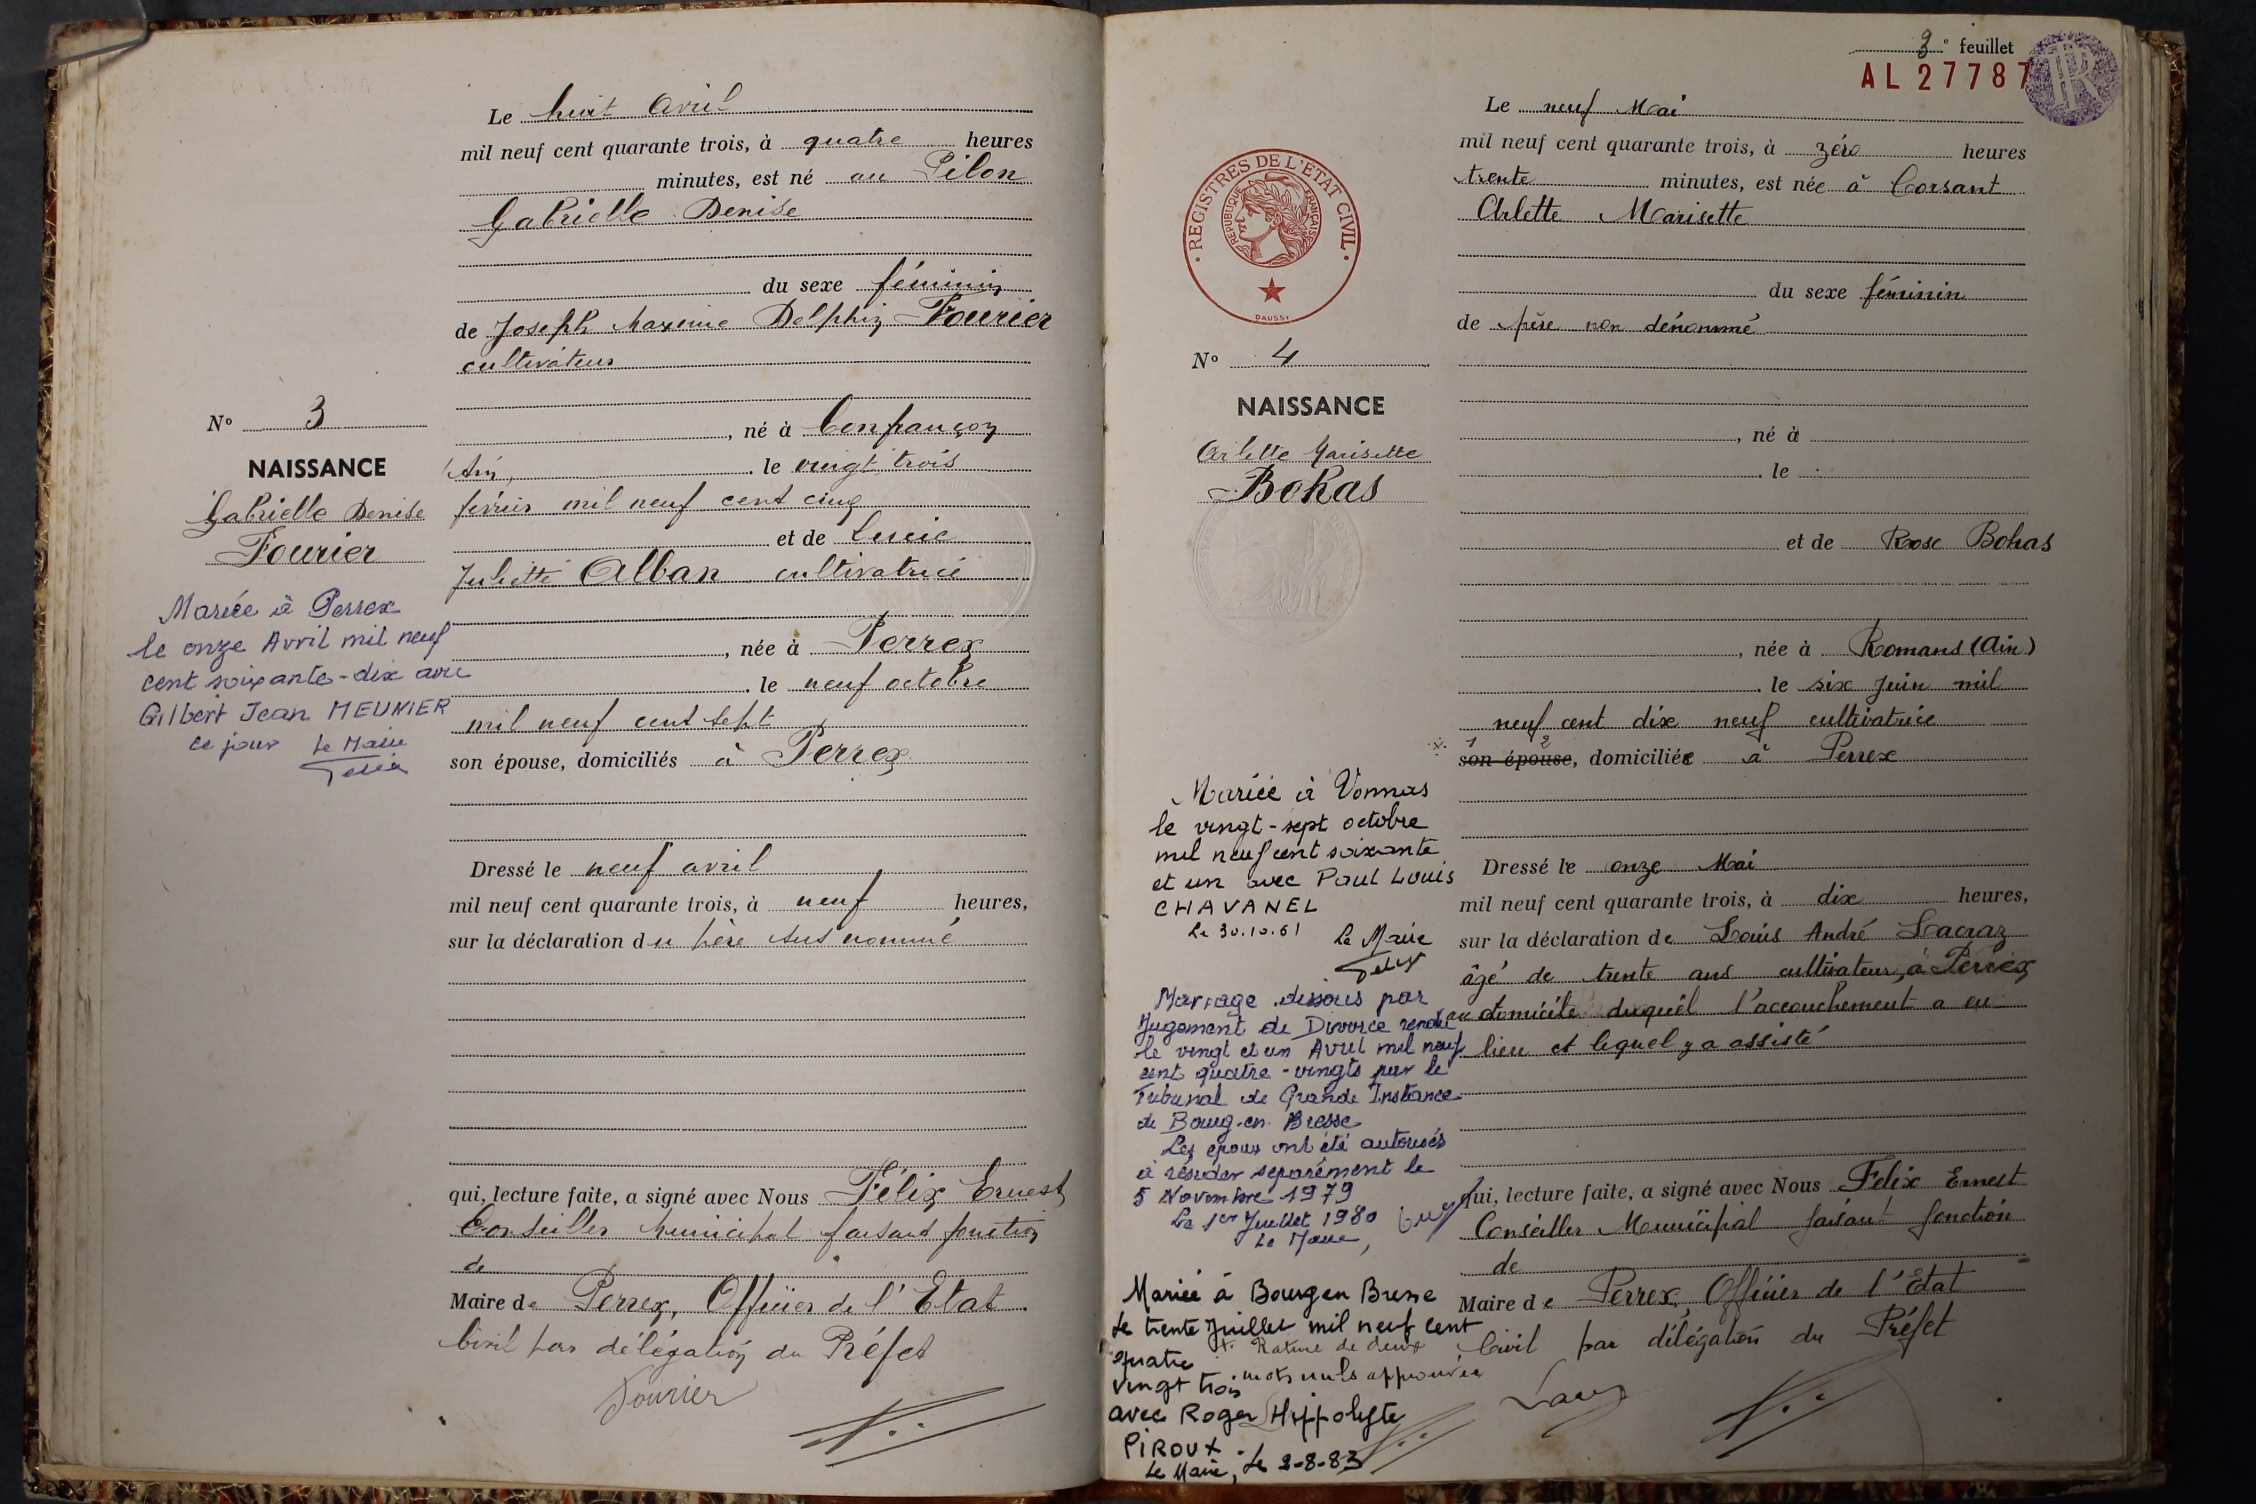 Le huit Avril
mil neuf cent quarante trois, à quatre heures
minutes, est né au Pilon
Gabrielle Denise
du sexe féminin
de Joseph Maxime Delphin Fourier
cultivateur
, né à Confrançon
Ain, le vingt trois
février mil neuf cent cinq
et de Lucie
Juliette Alban cultivatrice
, née à Perrex
le neuf octobre
mil neuf cent sept
son épouse, domiciliés à Perrex
Dressé le neuf avril
mil neuf cent quarante trois, à neuf heures,
sur la déclaration du père sus nommé
qui, lecture faite, a signé avec Nous Félix Ernest
Conseiller Municipal faisant fonction
de
Maire de Perrex, Officier de l'Etat
Civil par délégation du Préfet
Fourier
N° 3
NAISSANCE
Gabrielle Denise
Fourier
Mariée à Perrex
le onze Avril mil neuf
cent soixante-dix avec
Gilbert Jean MEUNIER
ce jour Le Maire
3e feuillet
AL 27787
Le neuf Mai
mil neuf cent quarante trois, à zéro heures
trente minutes, est née à Corsant
Arlette Marisette
du sexe féminin
de père non dénommé
, né à
le
et de Rose Bohas
, née à Romans (Ain)
le six Juin mil
neuf cent dix neuf cultivatrice
x. 1 2
son épouse, domiciliée à Perrex
Dressé le onze Mai
mil neuf cent quarante trois, à dix heures,
sur la déclaration de Louis André Lacraz
âgé de trente ans cultivateur, à Perrex
au domicile duquel l'accouchement a eu
lieu et lequel y a assisté
qui, lecture faite, a signé avec Nous Félix Ernest
Conseiller Municipal faisant fonction
de
Maire de Perrex, Officier de l'Etat
Civil par délégation du Préfet
REGISTRES DE L'ETAT CIVIL
REPUBLIQUE FRANÇAISE
DAUSSY
N° 4
NAISSANCE
Arlette Marisette
Bohas
Mariée à Vonnas
le vingt-sept octobre
mil neuf cent soixante
et un avec Paul Louis
CHAVANEL
Le 30.10.61
Le Maire
Mariage dissous par
Jugement de Divorce rendu
le vingt et un Avril mil neuf
cent quatre-vingts par le
Tribunal de Grande Instance
de Bourg-en-Bresse
Les époux ont été autorisés
à résider séparément le
5 Novembre 1979
Le 1er Juillet 1980
Le Maire,
Mariée à Bourg en Bresse
Le trente Juillet mil neuf cent
quatre
vingt trois
avec Roger Hippolyte
PIROUX
Le Maire, Le 2-8-83
x. Rature de deux
mots nuls approuvée